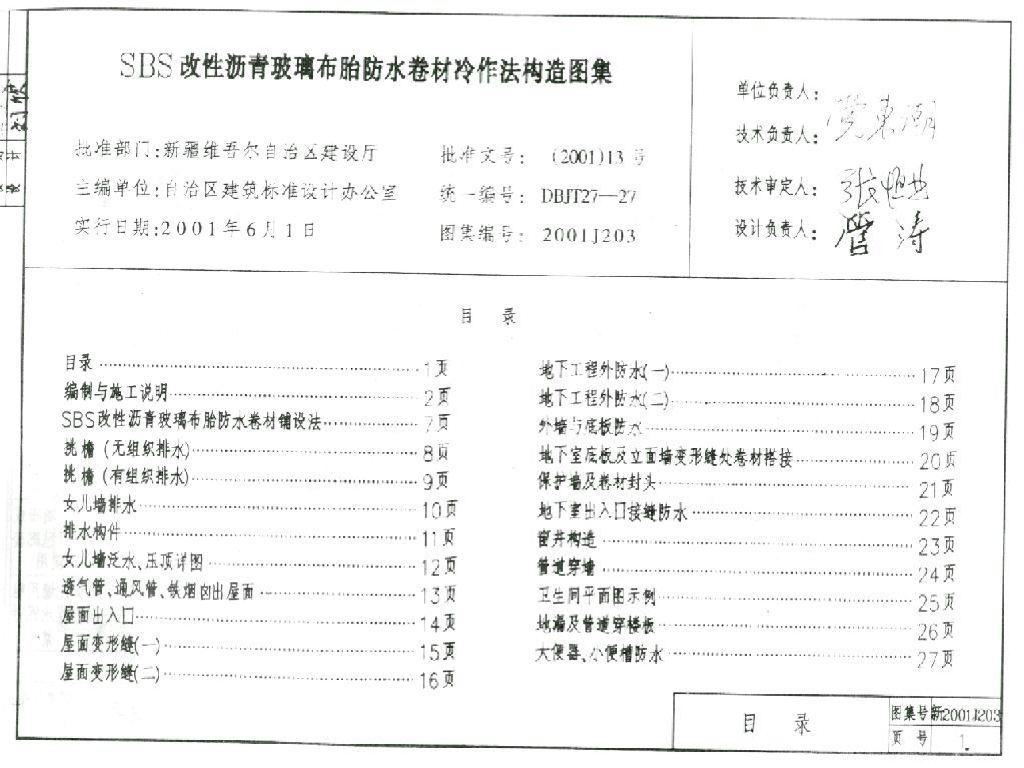 SBS改性沥青玻璃布胎防水卷材冷作法构造图集
批准部门:新疆维吾尔自治区建设厅
批准文号: (2001)13号
主编单位:自治区建筑标准设计办公室
统一编号: DBJT27—27
实行日期:2001年6月1日
图集编号: 2001J203
单位负责人:
技术负责人:
技术审定人:
设计负责人: 管涛
目 录
目录 1页
编制与施工说明 2页
SBS改性沥青玻璃布胎防水卷材铺设法 7页
挑檐(无组织排水) 8页
挑檐(有组织排水) 9页
女儿墙排水 10页
排水构件 11页
女儿墙泛水、压顶详图 12页
透气管、通风管、铁烟囱出屋面 13页
屋面出入口 14页
屋面变形缝(一) 15页
屋面变形缝(二) 16页
地下工程外防水(一) 17页
地下工程外防水(二) 18页
外墙与底板防水 19页
地下室底板及立面墙变形缝处卷材搭接 20页
保护墙及卷材封头 21页
地下室出入口接缝防水 22页
窗井构造 23页
管道穿墙 24页
卫生间平面图示例 25页
地漏及管道穿楼板 26页
大便器、小便槽防水 27页
目 录
图集号 新2001J203
页 号 1